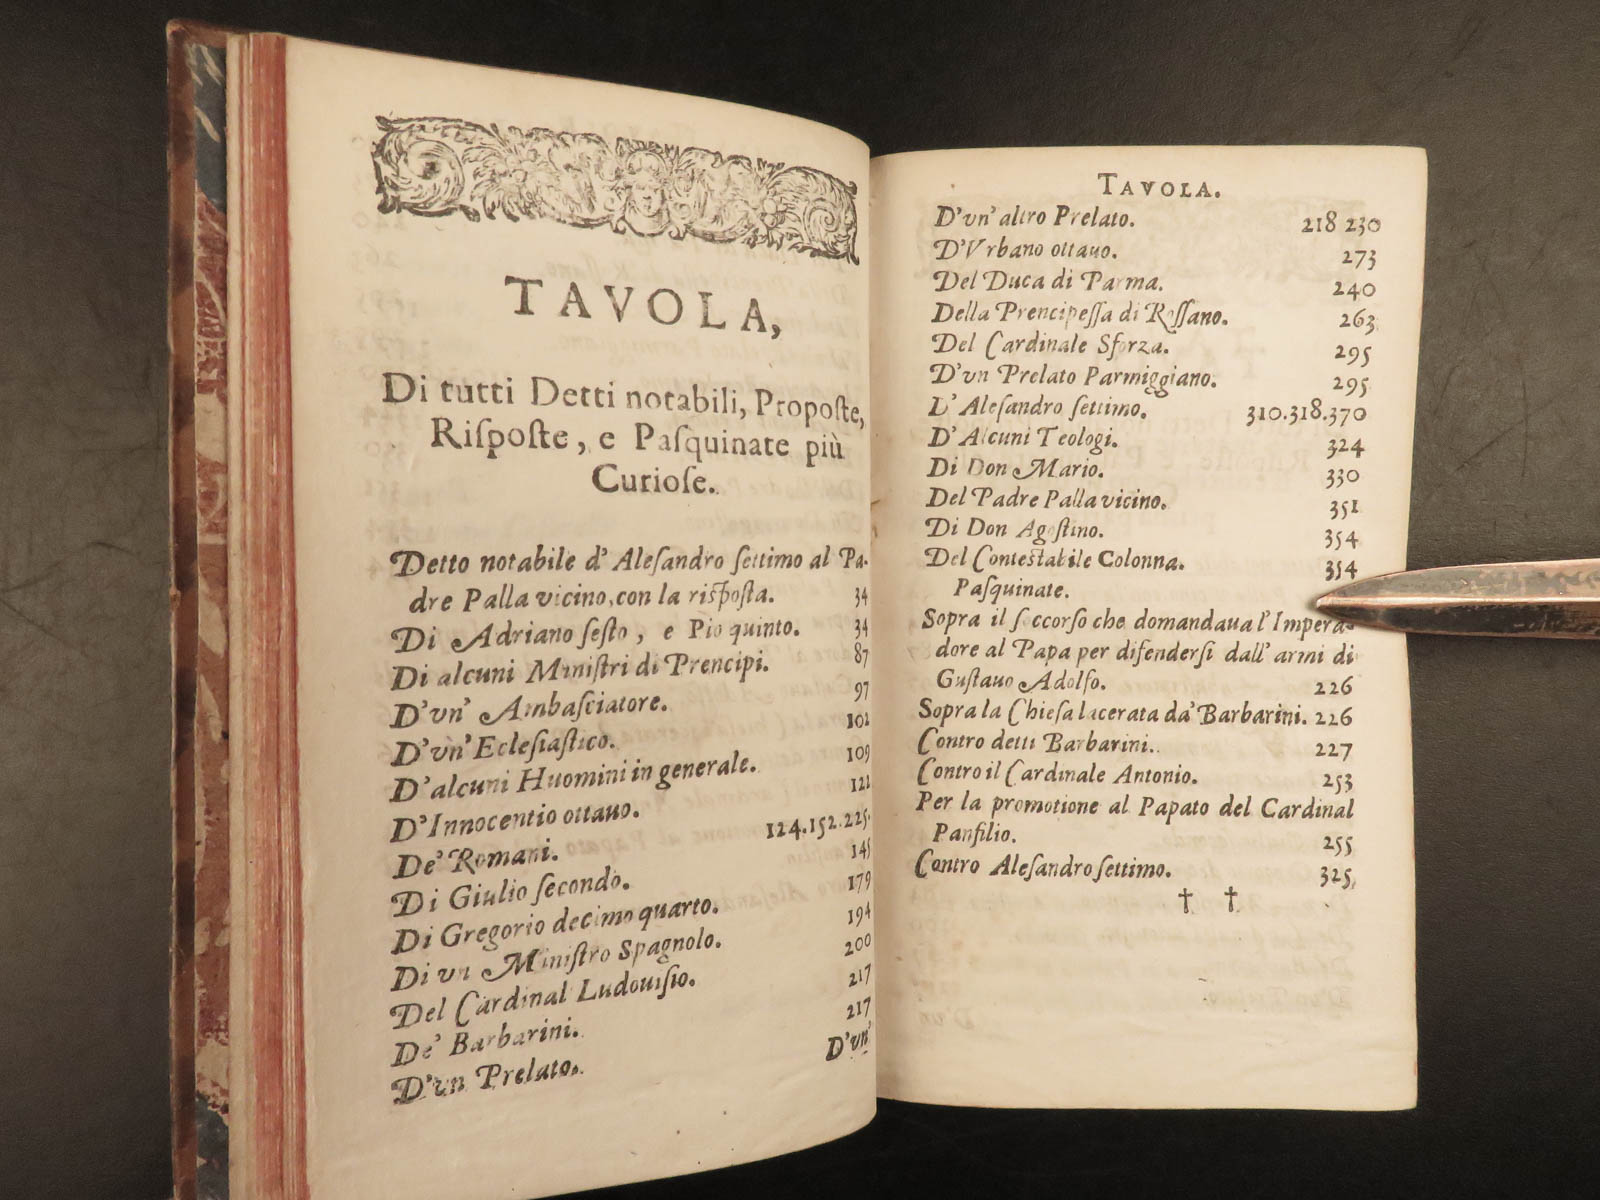 TAVOLA,
Di tutti Detti notabili, Propoſte,
Riſpoſte, e Paſquinate più
Curioſe.
Detto notabile d' Aleſandro ſettimo al Pa-
dre Pallavicino, con la riſpoſta. 34
Di Adriano ſeſto, e Pio quinto. 34
Di alcuni Miniſtri di Prencipi. 87
D'vn' Ambaſciatore. 97
D'vn' Eccleſiaſtico. 101
D'alcuni Huomini in generale. 109
D'Innocentio ottauo. 122
De' Romani. 124.152.225.
Di Giulio ſecondo. 145
Di Gregorio decimo quarto. 179
Di vn Miniſtro Spagnolo. 194
Del Cardinal Ludouiſio. 200
De' Barbarini. 217
D'vn Prelato. 217
D'vn'
TAVOLA.
D'vn' altro Prelato. 218 230
D'Vrbano ottauo. 273
Del Duca di Parma. 240
Della Prencipeſſa di Roſſano. 263
Del Cardinale Sforza. 295
D'vn Prelato Parmiggiano. 295
D' Aleſandro ſettimo. 310.318.370
D' Alcuni Teologi. 324
Di Don Mario. 330
Del Padre Pallavicino. 351
Di Don Agoſtino. 354
Del Conteſtabile Colonna. 354
Paſquinate.
Sopra il ſoccorſo che domandaua l' Impera-
dore al Papa per difenderſi dall' armi di
Guſtauo Adolfo. 226
Sopra la Chieſa lacerata da' Barbarini. 226
Contro detti Barbarini. 227
Contro il Cardinale Antonio. 253
Per la promotione al Papato del Cardinal
Panfilio. 255
Contro Aleſandro ſettimo. 325
† †